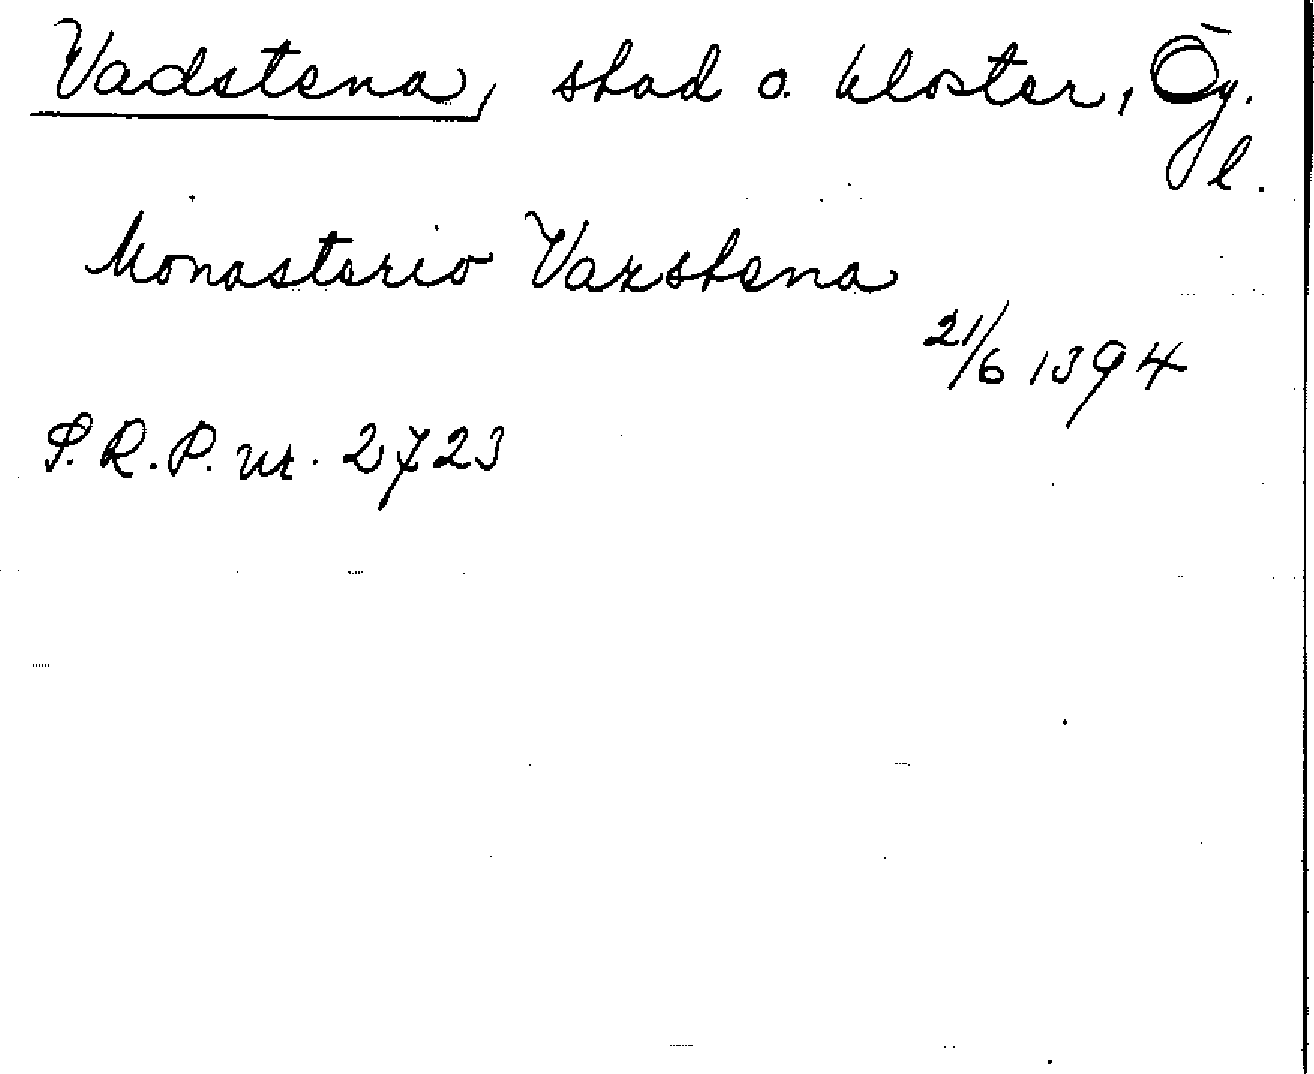 Vadstena, stad o. kloster, Ög.
l.
Monasterio Vazstena
21/6 1394
S.R.P. nr. 2723